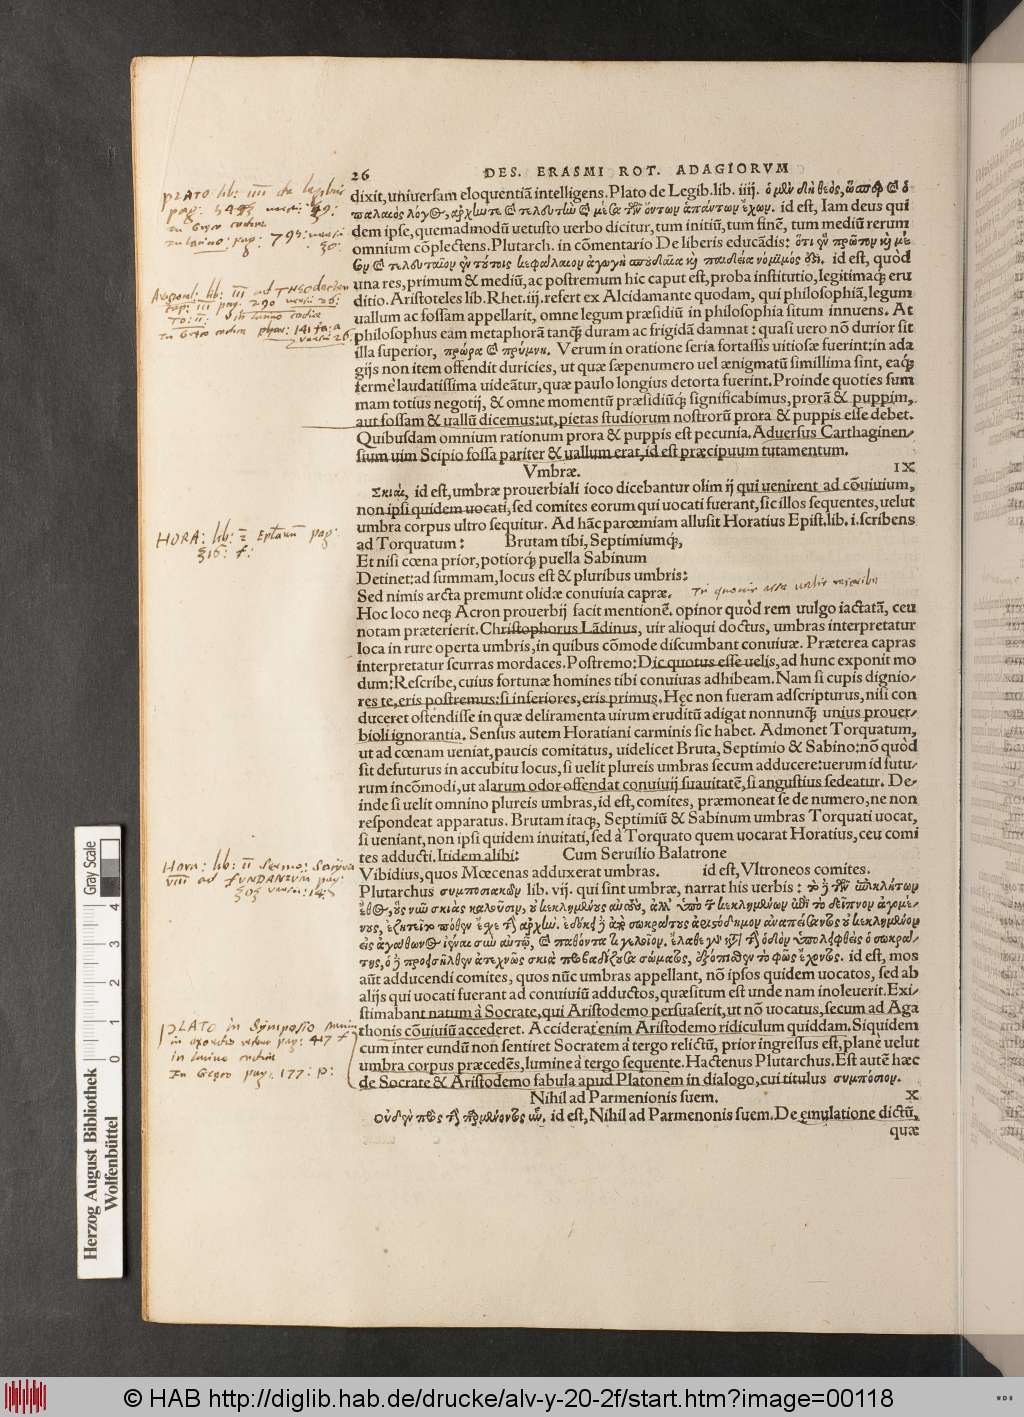 26
DES. ERASMI ROT. ADAGIORVM
dixit, uniuersam eloquentiã intelligens. Plato de Legib. lib. iiij. ὁ μὲν δὴ θεὸς, ὥσπερ καὶ ὁ
παλαιὸς λόγος, ἀρχήν τε καὶ τελευτὴν καὶ μέσα τῶν ὄντων ἁπάντων ἔχων. id est, Iam deus qui
dem ipse, quemadmodũ uetusto uerbo dicitur, tum initiũ, tum finẽ, tum mediũ rerum
omnium cõplectens. Plutarch. in cõmentario De liberis educãdis: ὅτι ἓν πρῶτον καὶ μέ
σον καὶ τελευταῖον ἐν τούτοις κεφάλαιον ἀγωγὴ σπουδαία καὶ παιδεία νόμιμός ὅζι. id est, quòd
una res, primum & mediũ, ac postremum hic caput est, proba institutio, legitimaq́; eru
ditio. Aristoteles lib. Rhet. iij. refert ex Alcidamante quodam, qui philosophiã, legum
uallum ac fossam appellarit, omne legum præsidiũ in philosophia situm innuens. At
philosophus eam metaphorã tanq̃ duram ac frigidã damnat: quasi uero nõ durior sit
illa superior, πρώρα καὶ πρύμνη. Verum in oratione seria fortassis uitiosæ fuerint: in ada
gijs non item offendit duricies, ut quæ sæpenumero uel ænigmatũ simillima sint, eaq́;
ferme laudatissima uideãtur, quæ paulo longius detorta fuerint. Proinde quoties sum
mam totius negotij, & omne momentũ præsidiũq́; significabimus, prorã & puppim,
aut fossam & uallũ dicemus: ut, pietas studiorum nostrorũ prora & puppis esse debet.
Quibusdam omnium rationum prora & puppis est pecunia. Aduersus Carthaginen-
sium uim Scipio fossa pariter & uallum erat, id est præcipuum tutamentum.
Vmbræ. IX
Σκιαὶ, id est, umbræ prouerbiali ioco dicebantur olim ij qui uenirent ad cõuiuium,
non ipsi quidem uocati, sed comites eorum qui uocati fuerant, sic illos sequentes, uelut
umbra corpus ultro sequitur. Ad hãc parœmiam allusit Horatius Epist. lib. i. scribens
ad Torquatum: Brutam tibi, Septimiumq́;,
Et nisi cœna prior, potiorq́; puella Sabinum
Detinet: ad summam, locus est & pluribus umbris:
Sed nimis arcta premunt olidæ conuiuia capræ.
Hoc loco neq; Acron prouerbij facit mentionẽ, opinor quòd rem uulgo iactatã, ceu
notam præterierit. Christophorus Lãdinus, uir alioqui doctus, umbras interpretatur
loca in rure operta umbris, in quibus cõmode discumbant conuiuæ. Præterea capras
interpretatur scurras mordaces. Postremo: Dic quotus esse uelis, ad hunc exponit mo
dum: Rescribe, cuius fortunæ homines tibi conuiuas adhibeam. Nam si cupis dignio-
res te, eris postremus: si inferiores, eris primus. Hęc non fueram adscripturus, nisi con
duceret ostendisse in quæ deliramenta uirum eruditũ adigat nonnunq̃ unius prouer-
bioli ignorantia. Sensus autem Horatiani carminis sic habet. Admonet Torquatum,
ut ad cœnam ueniat, paucis comitatus, uidelicet Bruta, Septimio & Sabino: nõ quòd
sit defuturus in accubitu locus, si uelit plureis umbras secum adducere: uerum id futu-
rum incõmodi, ut alarum odor offendat conuiuij suauitatẽ, si angustius sedeatur. De-
inde si uelit omnino plureis umbras, id est, comites, præmoneat se de numero, ne non
respondeat apparatus. Brutam itaq;, Septimiũ & Sabinum umbras Torquati uocat,
si ueniant, non ipsi quidem inuitati, sed à Torquato quem uocarat Horatius, ceu comi
tes adducti. Itidem alibi: Cum Seruilio Balatrone
Vibidius, quos Mœcenas adduxerat umbras. id est, Vltroneos comites.
Plutarchus συμποσιακῶν lib. vij. qui sint umbræ, narrat his uerbis: τὸ δὲ τῶν ἐπικλήτων
ἔθος, οὓς νῦν σκιὰς καλοῦσιν, οὐ κεκλημένους αὐτοὺς, ἀλλ' ὑπὸ τῶν κεκλημένων ἐπὶ τὸ δεῖπνον ἀγομέ-
νους, ἐζητεῖτο πόθεν ἔσχε τὴν ἀρχὴν. ἐδόκει δὲ ἀπὸ σωκράτους ἀριστόδημον ἀναπείσαντος οὐ κεκλημένον
εἰς ἀγάθωνος ἰέναι σὺν αὐτῷ, καὶ παθόντα τι γελοῖον. ἔλαθε γὰρ κατὰ τὴν ὁδὸν ὑπολειφθεὶς ὁ σωκρά-
της, ὁ δὲ προεισῆλθεν ἀτεχνῶς σκιὰ προβαδίζουσα σώματος, ἐξόπισθεν τὸ φῶς ἔχοντος. id est, mos
aũt adducendi comites, quos nũc umbras appellant, nõ ipsos quidem uocatos, sed ab
alijs qui uocati fuerant ad conuiuiũ adductos, quæsitum est unde nam inoleuerit. Exi-
stimabant natum à Socrate, qui Aristodemo persuaserit, ut nõ uocatus, secum ad Aga
thonis cõuiuiũ accederet. Acciderat enim Aristodemo ridiculum quiddam. Siquidem
cum inter eundũ non sentiret Socratem à tergo relictũ, prior ingressus est, plane uelut
umbra corpus præcedẽs, lumine à tergo sequente. Hactenus Plutarchus. Est autẽ hæc
de Socrate & Aristodemo fabula apud Platonem in dialogo, cui titulus συμπόσιον.
Nihil ad Parmenionis suem. X
Οὐδὲν πρὸς τὴν παρμένοντος ὗν. id est, Nihil ad Parmenonis suem. De ęmulatione dictũ,
quæ
PLATO lib: IIII de legibus
HORA: lib:
PLATO in Symposio
Gray Scale
0 1 2 3 4
Herzog August Bibliothek
Wolfenbüttel
© HAB http://diglib.hab.de/drucke/alv-y-20-2f/start.htm?image=00118